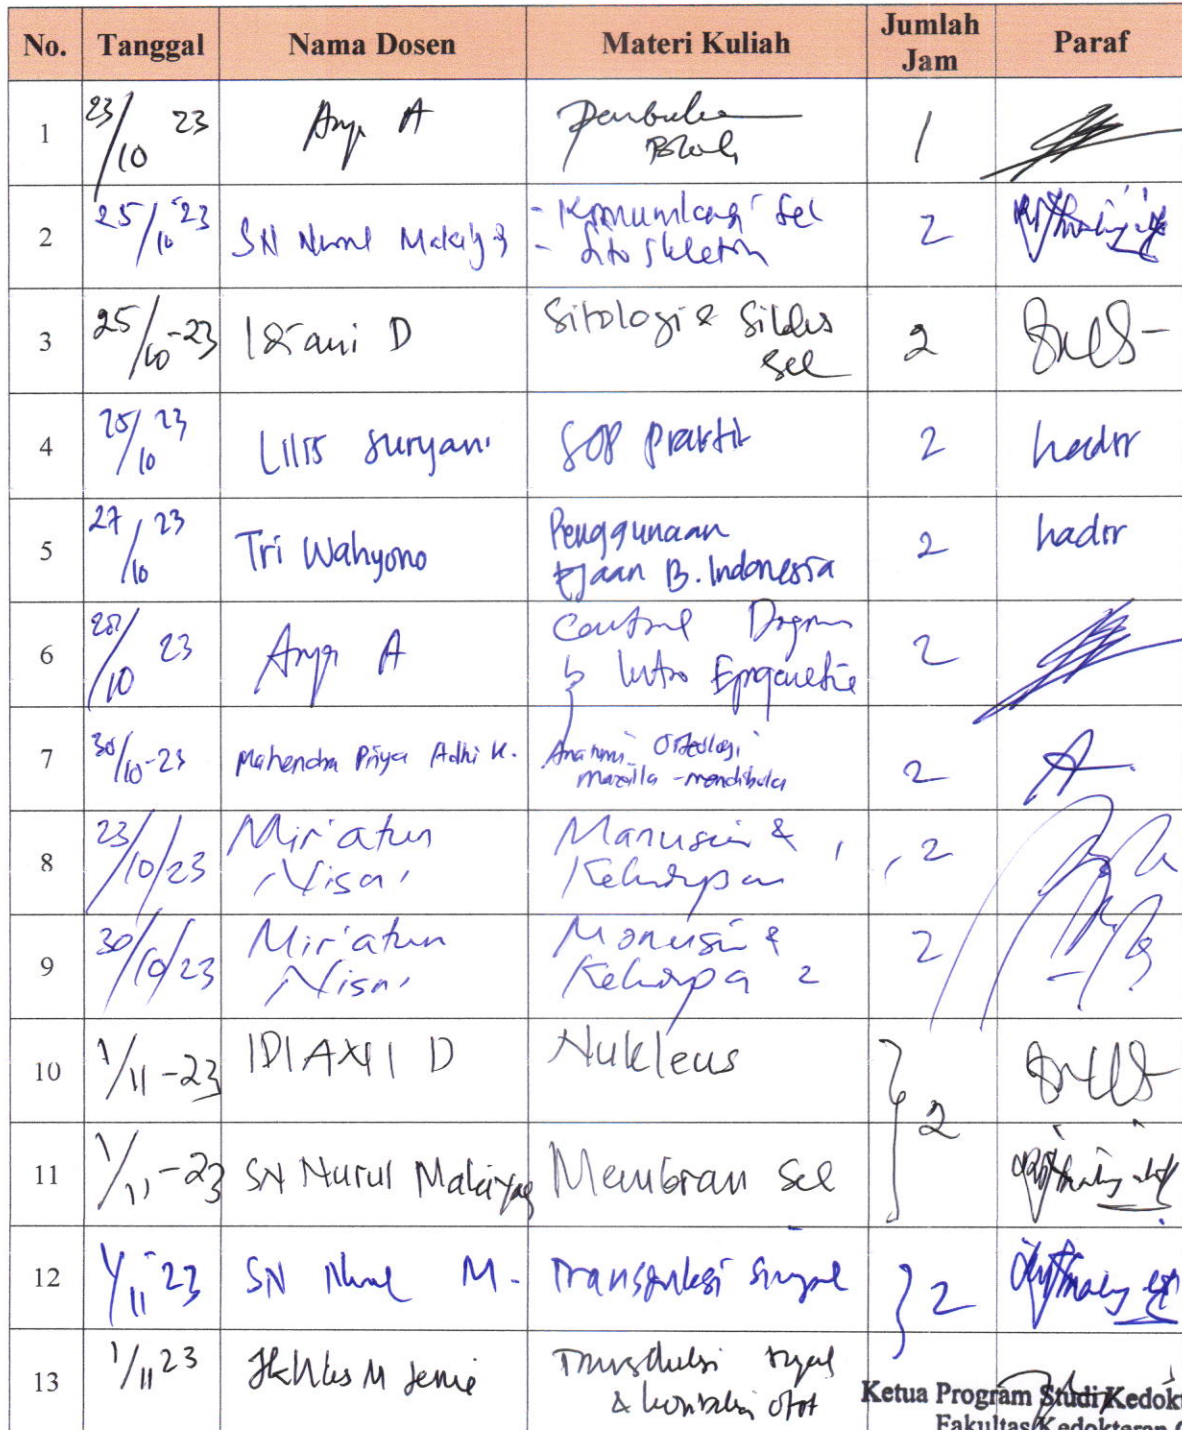 No. Tanggal Nama Dosen Materi Kuliah Jumlah Jam Paraf
1 23/10 23 A 1
2 25/10 '23 SN Nurul Makiyah - Komunikasi Sel 2
- Sitoskeleton
3 25/10-23 Idiani D Sitologi & Siklus 2
Sel
4 25/10 23 Lilis Suryani SOP Praktik 2 hadir
5 27/10 23 Tri Wahyono Penggunaan 2 hadir
Ejaan B. Indonesia
6 10 23 A 2
Intro Epigenetic
7 30/10-23 Mahendra Priya Adhi K. Anatomi Osteologi 2
maxilla - mandibula
8 23/10/23 Mir'atun Manusia & 2
Nisa' Kehidupan
9 30/10/23 Mir'atun Manusia & 2
Nisa' 2
10 1/11-23 IDIANI D Nukleus 2
11 1/11-23 SN Nurul Makiyah Membran Sel
12 1/11 23 SN Nurul M. Transduksi sinyal 2
13 1/11 23 M Transduksi sinyal
& kontraksi otot
Ketua Program Studi Kedokt
Fakultas Kedokteran